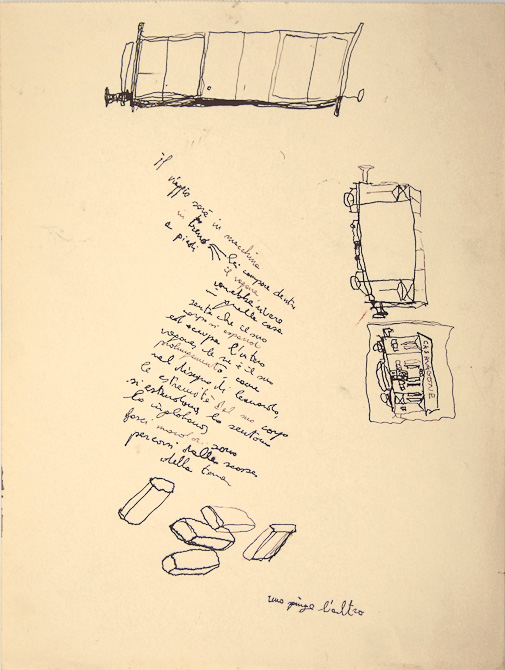 il
viaggio sarà in macchina
in treno
a piedi
lei compare dentro
il vagone
vorrebbe vivere
quella casa
sente che il suo
corpo si espande
ed occupa l'intero
vagone, la si è il suo
prolungamento come
nel disegno di Leonardo,
le estremità del suo corpo
si estendono, lo sentono
lo inglobano,
fasci sono
percorsi dalle scosse
della terra
CASA VAGONE
uno spinge l'altro